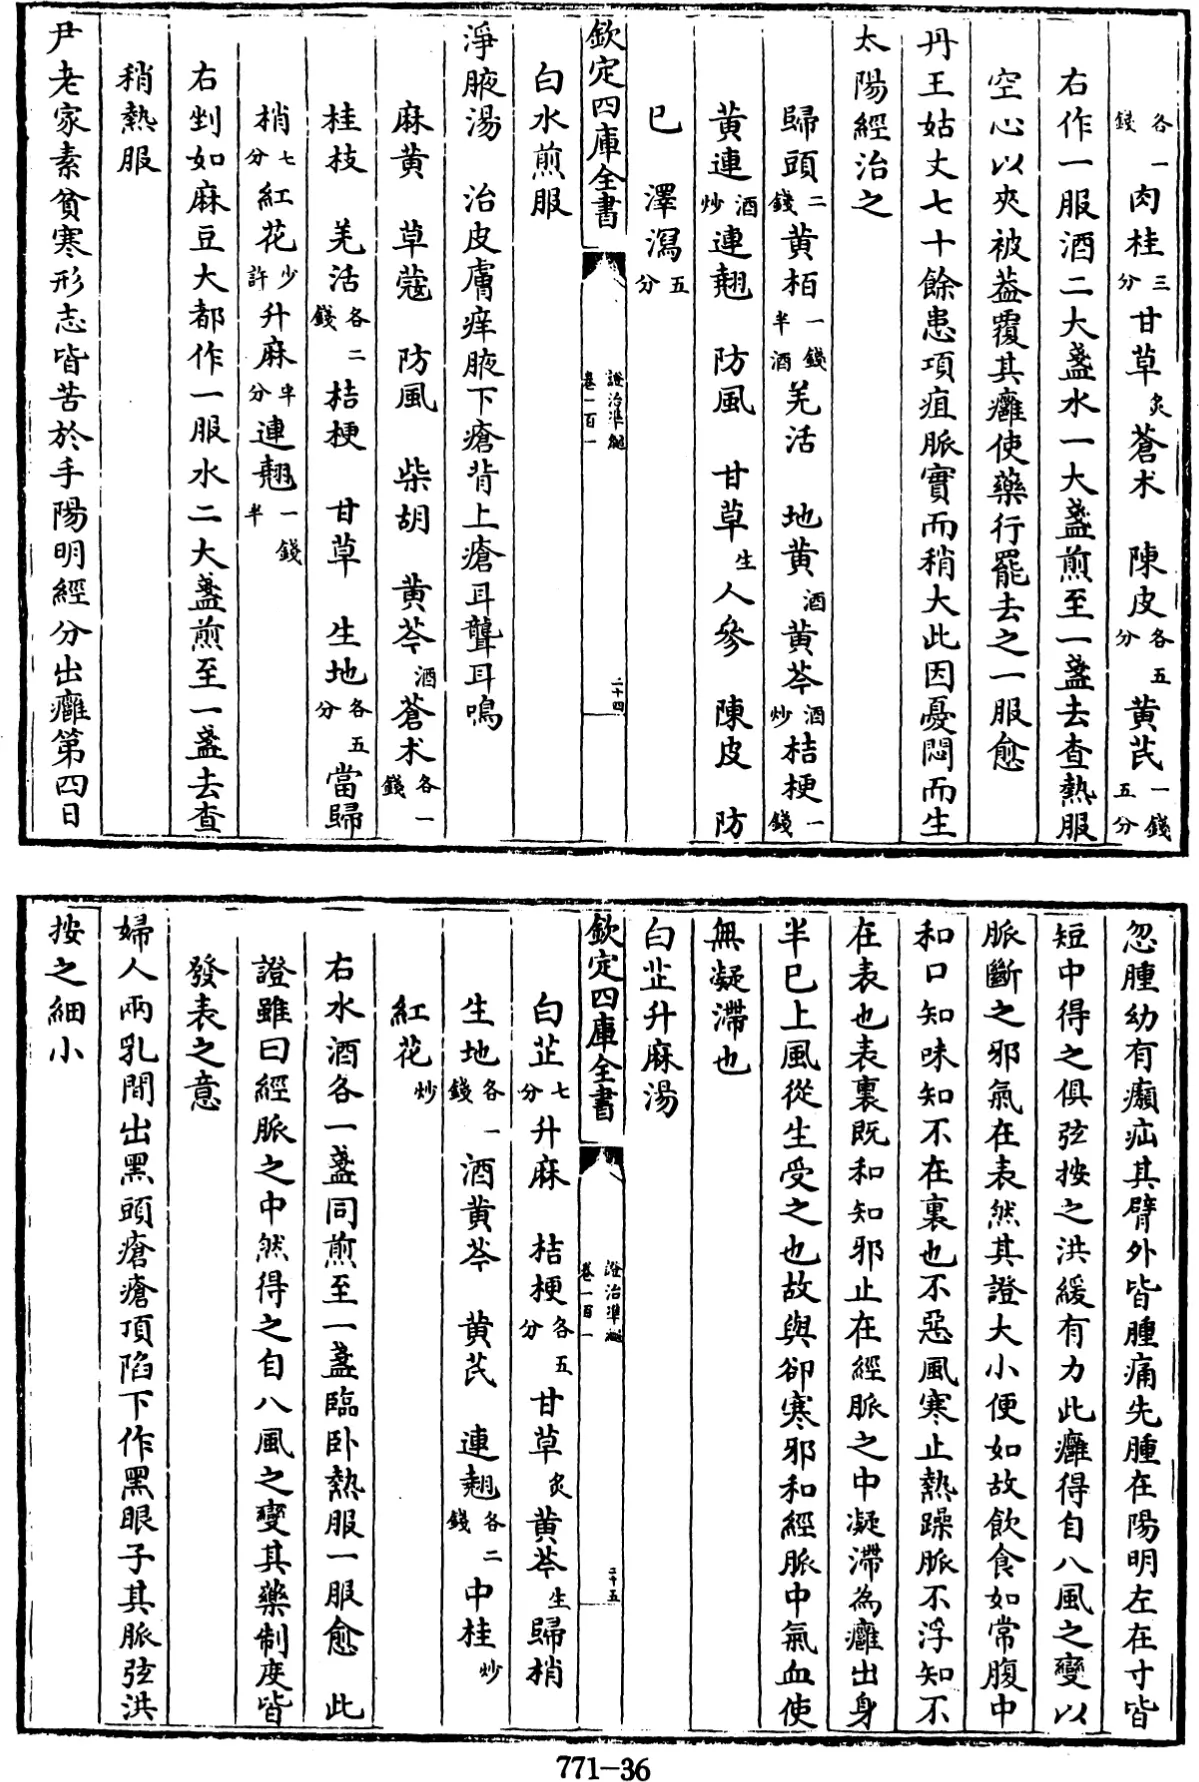 各一錢肉桂三分甘草炙蒼术 陳皮各五分黄芪一錢五分
右作一服酒二大盞水一大盞煎至一盞去查熱服
空心以夾被蓋覆其癰使藥行罷去之一服愈
丹王姑丈七十餘患項疽脈實而稍大此因憂悶而生
太陽經治之
歸頭二錢黄栢一錢半酒羌活 地黄酒黄芩酒炒桔梗一錢
黄連酒炒連翹 防風 甘草生人參 陳皮 防
巳 澤瀉五分
欽定四庫全書
證治準繩
卷一百一
二十四
白水煎服
淨腋湯 治皮膚痒腋下瘡背上瘡耳聾耳鳴
麻黄 草蔻 防風 柴胡 黄芩酒蒼术各一錢
桂枝 羌活各二錢桔梗 甘草 生地各五分當歸
梢七分紅花少許升麻半分連翹一錢半
右剉如麻豆大都作一服水二大盞煎至一盞去查
稍熱服
尹老家素貧寒形志皆苦於手陽明經分出癰第四日
忽腫幼有癩疝其臂外皆腫痛先腫在陽明左在寸皆
短中得之俱弦按之洪緩有力此癰得自八風之變以
脈斷之邪氣在表然其證大小便如故飲食如常腹中
和口知味知不在裏也不惡風寒止熱躁脈不浮知不
在表也表裏既和知邪止在經脈之中凝滯為癰出身
半巳上風從生受之也故與卻寒邪和經脈中氣血使
無凝滯也
白芷升麻湯
欽定四庫全書
證治準繩
卷一百一
二十五
白芷七分升麻 桔梗各五分甘草炙黄芩生歸梢
生地各一錢酒黄芩 黄芪 連翹各二錢中桂炒
紅花炒
右水酒各一盞同煎至一盞臨卧熱服一服愈 此
證雖曰經脈之中然得之自八風之變其藥制度皆
發表之意
婦人兩乳間出黑頭瘡瘡頂陷下作黑眼子其脈弦洪
按之細小
771-36